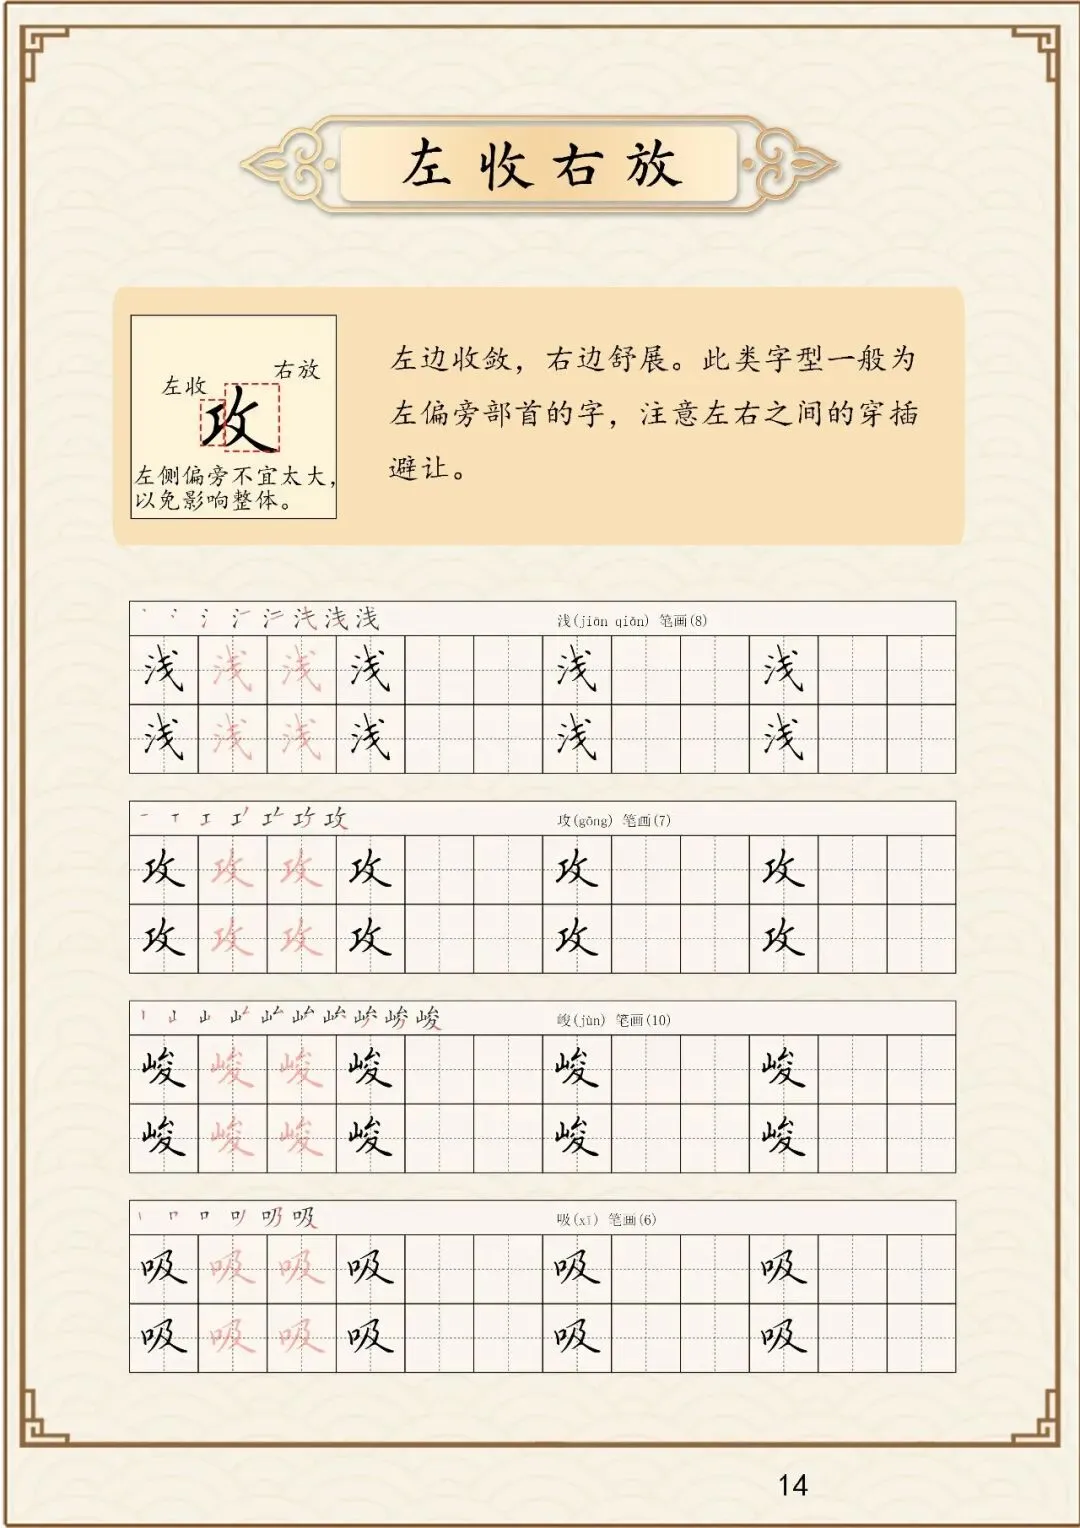 左收右放
左收
右放
攻
左侧偏旁不宜太大，
以免影响整体。
左边收敛，右边舒展。此类字型一般为
左偏旁部首的字，注意左右之间的穿插
避让。
浅(jiān qiǎn) 笔画(8)
浅 浅 浅 浅 浅 浅
浅 浅 浅 浅 浅 浅
攻(gōng) 笔画(7)
攻 攻 攻 攻 攻 攻
攻 攻 攻 攻 攻 攻
峻(jùn) 笔画(10)
峻 峻 峻 峻 峻 峻
峻 峻 峻 峻 峻 峻
吸(xī) 笔画(6)
吸 吸 吸 吸 吸 吸
吸 吸 吸 吸 吸 吸
14